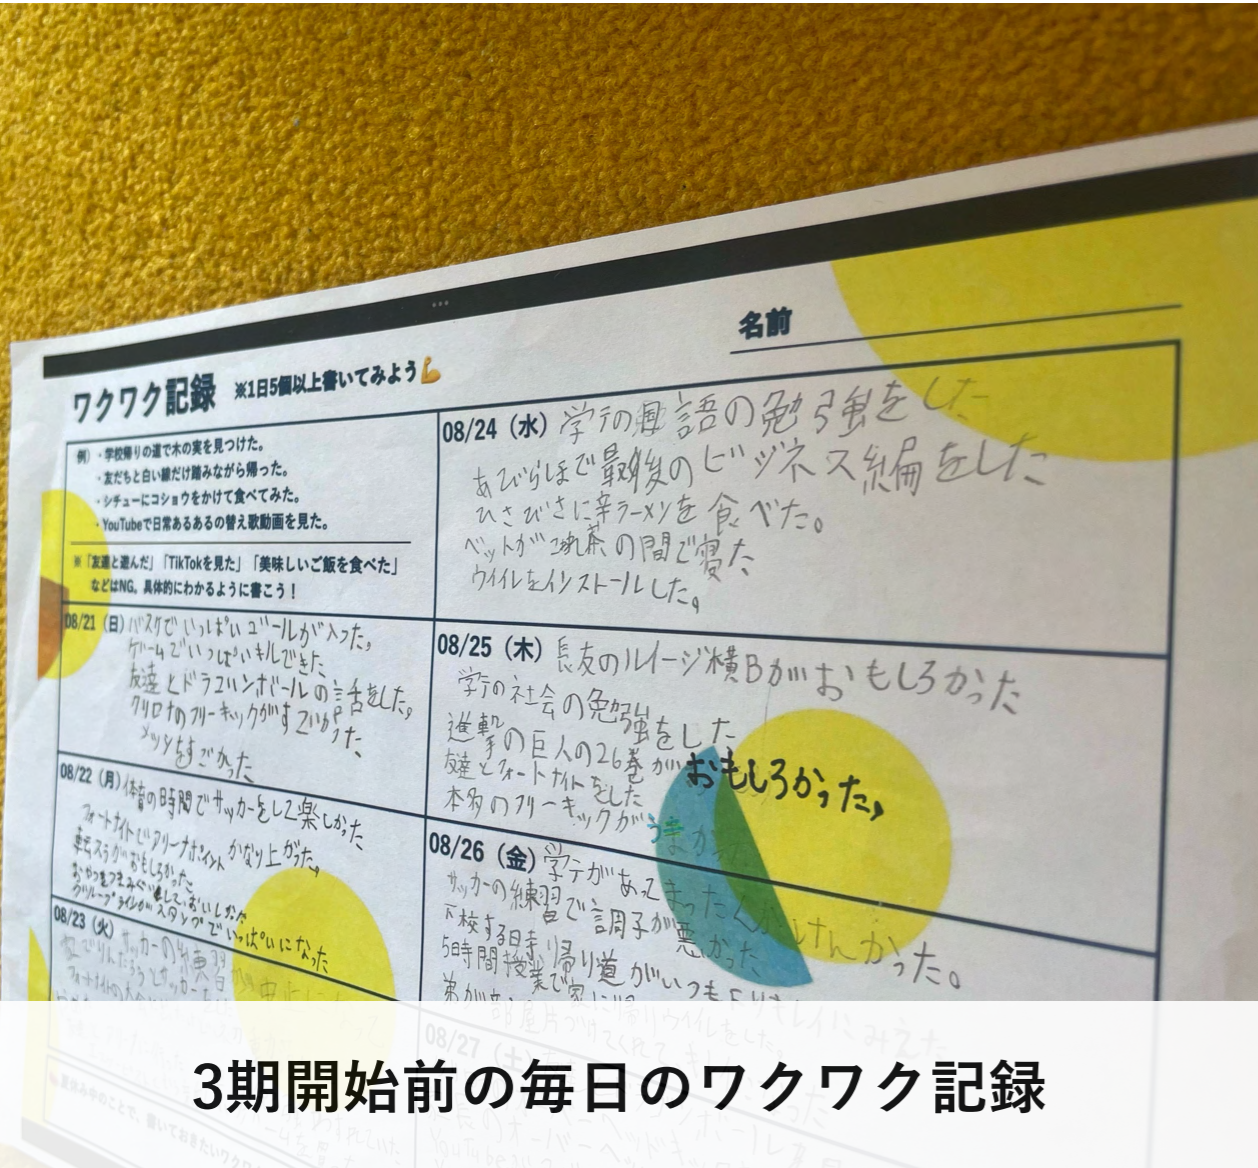 名前
ワクワク記録 ※1日5個以上書いてみよう💪
例）・学校帰りの道で木の実を見つけた。
・友だちと白い線だけ踏みながら帰った。
・シチューにコショウをかけて食べてみた。
・YouTubeで日常あるあるの替え歌動画を見た。
※「友達と遊んだ」「TikTokを見た」「美味しいご飯を食べた」
などはNG。具体的にわかるように書こう！
08/21（日）バスケでいっぱいゴールが入った。
ゲームでいっぱいキルできた
友達とドラゴンボールの話をした。
クリロナのフリーキックがすごかった
メッシもすごかった
08/22（月）体育の時間でサッカーをして楽しかった
フォートナイトでアリーナポイントかなり上がった。
転スラがおもしろかった
グループラインがスタンプでいっぱいになった
08/23（火）サッカーの練習が中止になって
08/24（水）学テの国語の勉強をした
あびらしほで最後のビジネス編をした
ひさびさに辛ラーメンを食べた。
ペットが茶の間で寝た
ウイイレをインストールした。
08/25（木）長友のルイージ横Bがおもしろかった
学テの社会の勉強をした
進撃の巨人の26巻がおもしろかった。
友達とフォートナイトをした
本多のフリーキックがうまかった
08/26（金）学テがあってまったくかけんかった。
サッカーの練習で調子が悪かった
下校する時、帰り道がいつもよりキレイにみえた
5時間授業で家に帰りウイイレをした。
弟が部屋片づけてくれて
08/27（土）
3期開始前の毎日のワクワク記録